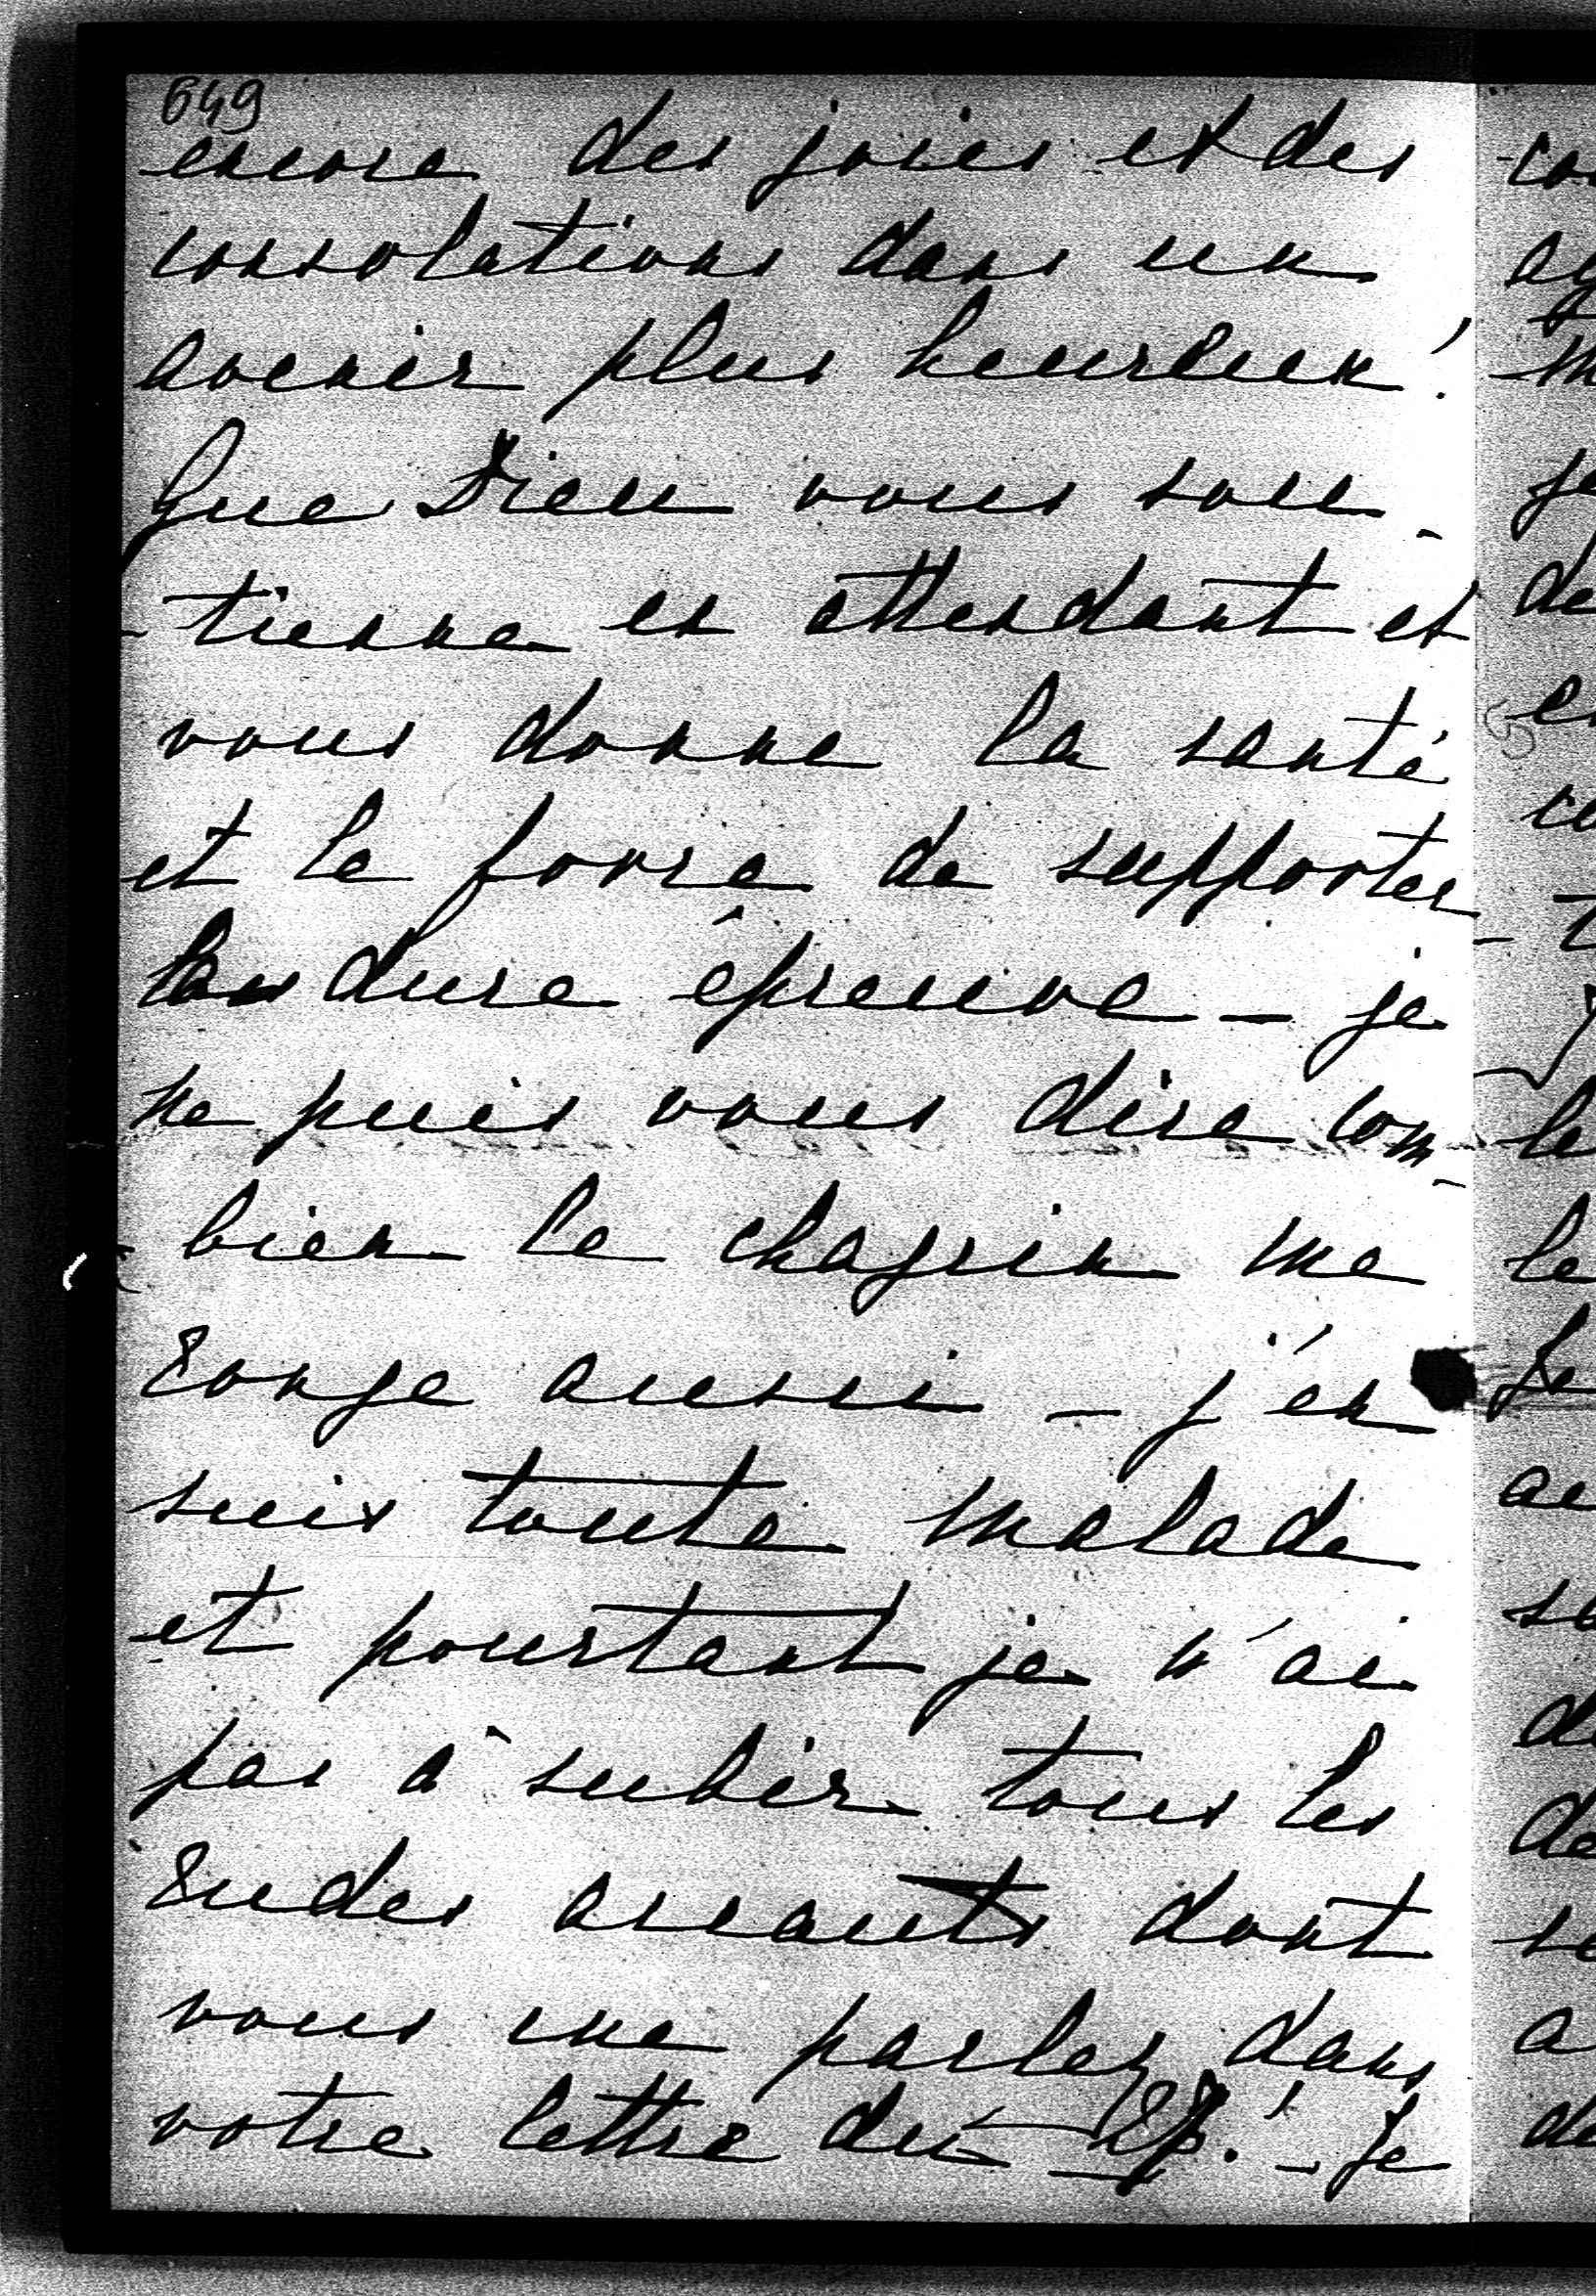 649
encore des joies et des
consolations dans un
avenir plus heureux!
Que Dieu vous sou-
-tienne en attendant et
vous donne la santé
et la force de supporter
la dure épreuve - je
ne puis vous dire com-
-bien le chagrin me
ronge aussi - j'en
suis toute malade
et pourtant je n'ai
pas à subir tous les
rudes assauts dont
vous me parlez dans
votre lettre du ! - Je